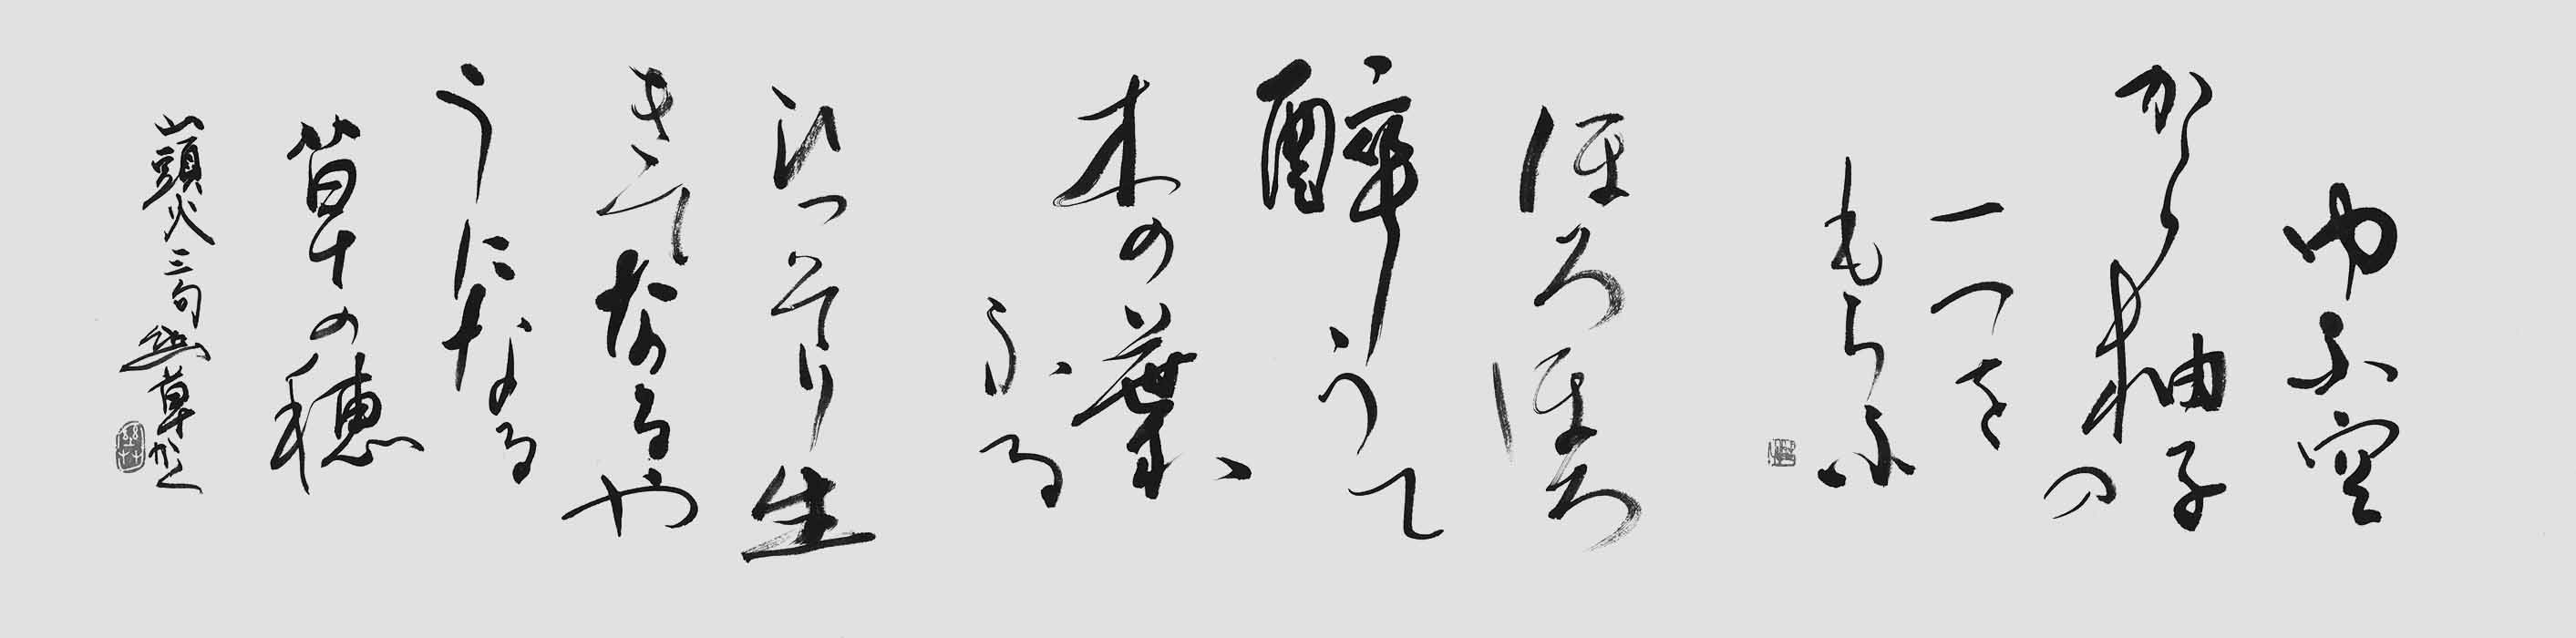 ゆふ空
から柚子の
一つを
もらふ
ほろほろ
酔うて
木の葉
ふる
ひつそり生
きてなるや
うになる
草の穂
山頭火三句 草かく